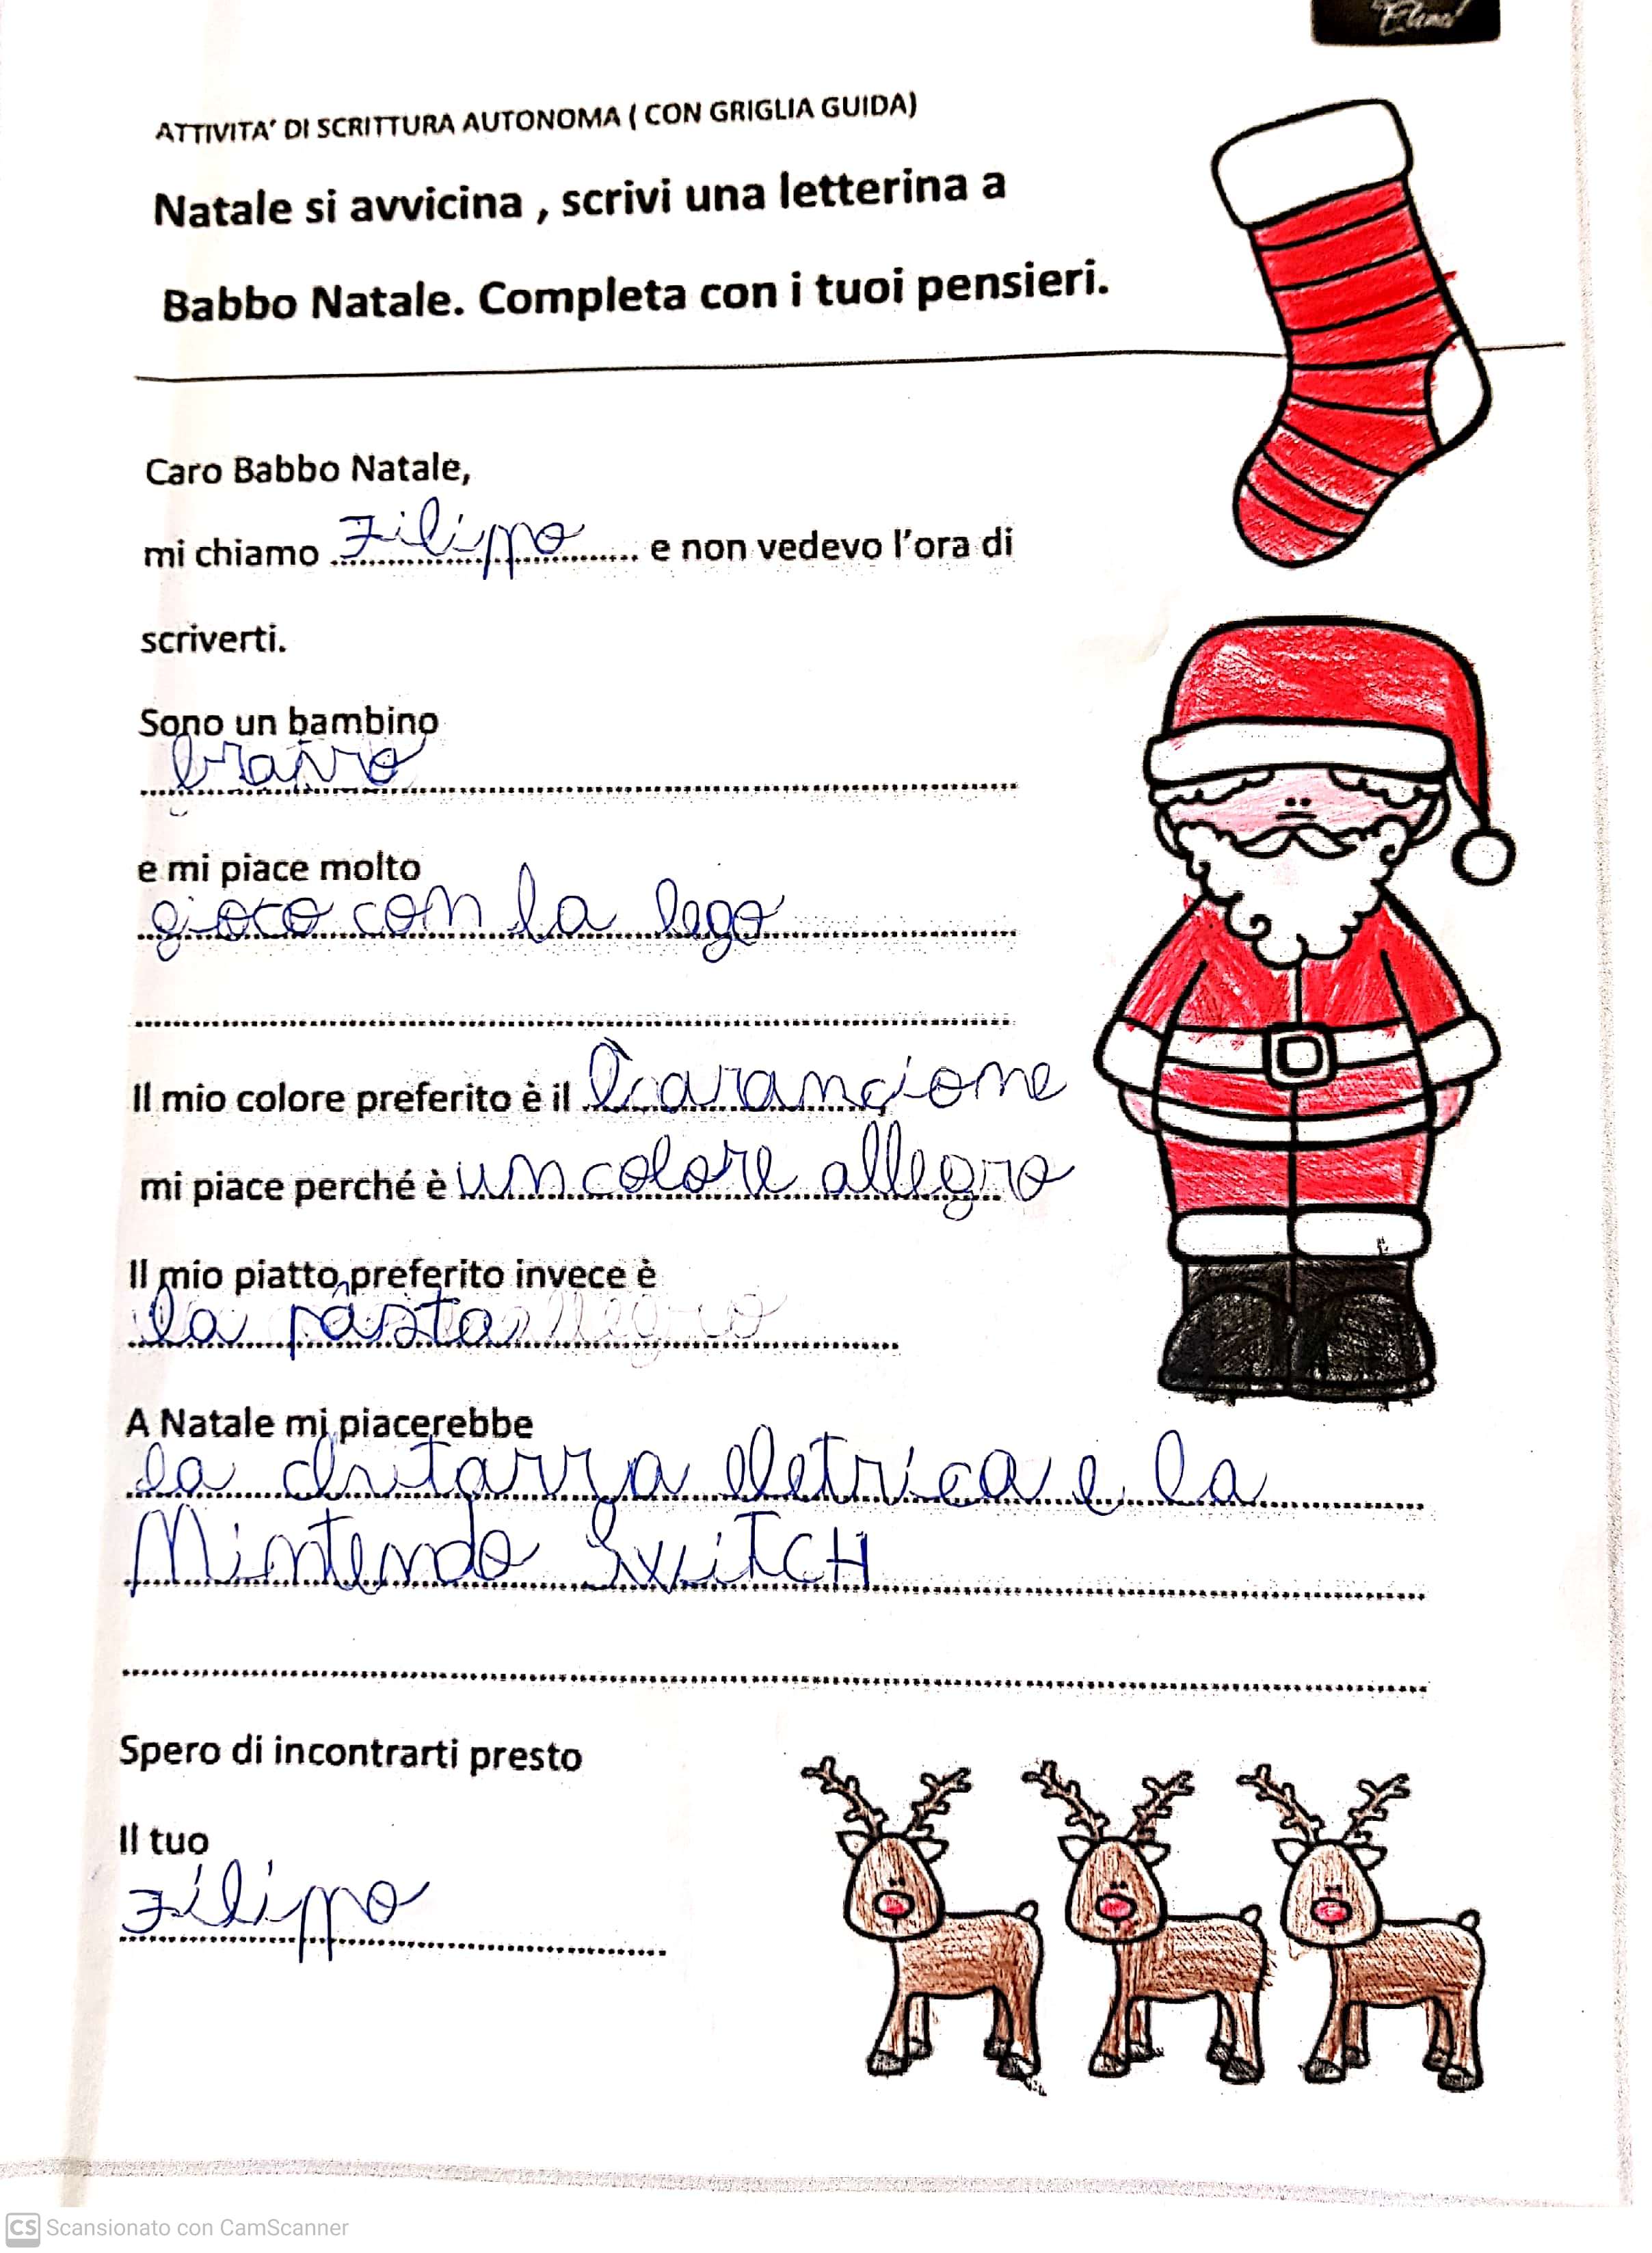 ATTIVITA' DI SCRITTURA AUTONOMA ( CON GRIGLIA GUIDA)
Natale si avvicina , scrivi una letterina a
Babbo Natale. Completa con i tuoi pensieri.
Caro Babbo Natale,
mi chiamo Filippo e non vedevo l'ora di
scriverti.
Sono un bambino
bravo
e mi piace molto
gioco con la lego
Il mio colore preferito è il l'arancione
mi piace perché è un colore allegro
Il mio piatto preferito invece è
la pasta
A Natale mi piacerebbe
la chitarra eletrica e la
Nintendo SwiTCH
Spero di incontrarti presto
Il tuo
Filippo
CS Scansionato con CamScanner